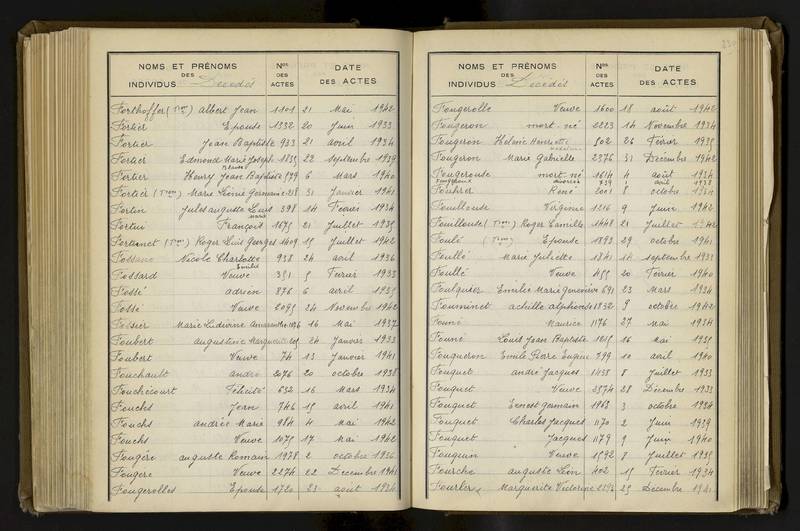 NOMS ET PRÉNOMS DES INDIVIDUS Décédés Nos DES ACTES DATE DES ACTES
Forthoffer (Tion) Albert Jean 1101 21 Mai 1942
Fortier Epouse 1332 20 Juin 1933
Fortier Jean Baptiste 933 21 avril 1934
Fortier Edmond Marie Joseph 1835 22 septembre 1939
Fortier Henry Jean Baptiste 599 6 Mars 1940
Fortier (Tion) Marie Léonie Germaine 258 31 Janvier 1941
Fortin Jules auguste Louis 398 14 Février 1934
Marie
Fortin François 1675 21 Juillet 1935
Fortinet (Tion) Roger Louis Georges 1409 15 Juillet 1942
Fossard Nicole Charlotte 938 24 avril 1936
Emilie
Fossard Veuve 351 5 Février 1933
Fossé adrien 876 6 avril 1935
Fossé Veuve 2095 24 Novembre 1942
Fossier Marie Ludivine 16 Mai 1937
Foubert augustine Marguerite 24 Janvier 1933
Foubert Veuve 74 13 Janvier 1941
Fouchault andré 2076 20 octobre 1938
Fouchécourt Félicité 632 16 Mars 1934
Fouchs Jean 746 15 avril 1941
Fouchs andrée Marie 984 4 Mai 1942
Fouchs Veuve 1075 17 Mai 1942
Fougère auguste Romain 1978 2 octobre 1936
Fougère Veuve 2274 22 Décembre 1941
Fougerolles Epouse 1720 23 août 1934
NOMS ET PRÉNOMS DES INDIVIDUS Décédés Nos DES ACTES DATE DES ACTES
Fougerolle Veuve 1600 18 août 1942
Fougeron mort-né 2223 14 Novembre 1934
Fougeron Hélène Henriette 502 26 Février 1935
Fougeron Marie Gabrielle 2376 31 Décembre 1942
Fougerouse mort-né 1614 4 août 1934
Fougeroux 939 avril 1938
Fouhrer René 2001 8 octobre 1941
Fouillouse Virginie 1216 9 Juin 1942
Fouillouse (Tion) Roger Camille 1448 21 Juillet 1942
Foulé (Tion) Epouse 1893 29 octobre 1941
Foullé Marie Juliette 1841 14 septembre 1933
Foullé Veuve 455 20 Février 1940
Foulquier Emilie Marie Geneviève 691 23 Mars 1934
Fouminet achille alphonse 1832 9 octobre 1942
Founé Maurice 1176 27 Mai 1934
Founé Louis Jean Baptiste 1215 16 Mai 1935
Fouqueron Emile Pierre Eugène 799 10 avril 1940
Fouquet andré Jacques 1438 8 Juillet 1933
Fouquet Veuve 2574 28 Décembre 1933
Fouquet Ernest Germain 1963 3 octobre 1934
Fouquet Charles Jacques 1170 2 Juin 1939
Fouquet Jacques 1179 9 Juin 1940
Fouquin Veuve 1592 8 Juillet 1935
Fourche auguste Léon 402 15 Février 1934
Fourler Marguerite Victorine 2296 25 Décembre 1941